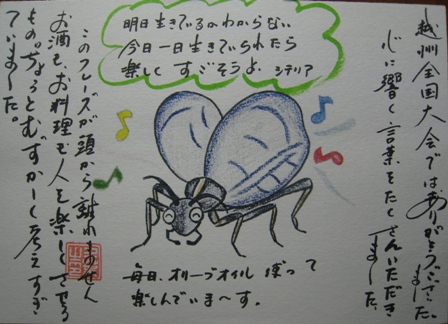 越州全国大会ではありがとうございました。
心に響く言葉をたくさんいただき
ました。
明日生きているかわからない
今日一日生きていられたら
楽しくすごそうよ シテリア
このフレーズが頭から離れません
お酒も、お料理も人を楽しくさせる
もの。ちょっとむずかしく考えすぎ
ていました。
毎日、オリーブオイルぬって
楽しんでいま〜す。